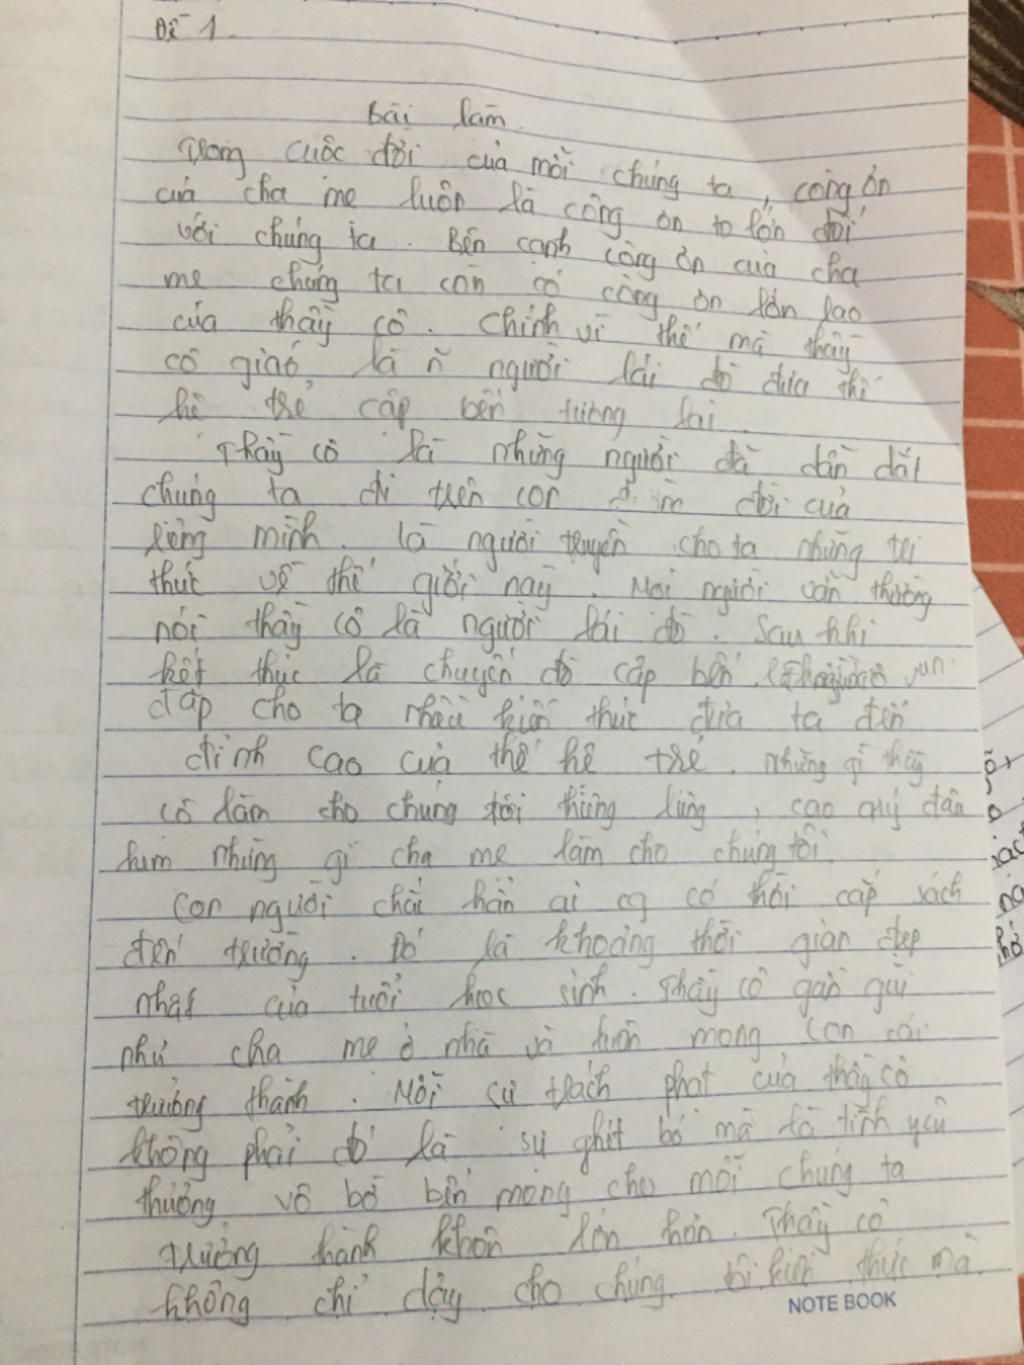 Đề 1.
Bài làm.
Trong cuộc đời của mỗi chúng ta, công ơn
của cha mẹ luôn là công ơn to lớn đối
với chúng ta. Bên cạnh công ơn của cha
mẹ chúng ta còn có công ơn lớn lao
của thầy cô. Chính vì thế mà thầy
cô giáo là n~ người lái đò đưa thế
hệ trẻ cập bến tương lai.
Thầy cô là những người đã dẫn dắt
chúng ta đi trên con đời của
riêng mình. là người truyền cho ta những tri
thức về thế giới này. Mọi người vẫn thường
nói thầy cô là người lái đò. Sau khi
kết thúc là chuyến đò cập bến. vun
đắp cho ta nhiều kiến thức đưa ta đến
đỉnh cao của thế hệ trẻ. những gì thầy
cô làm cho chúng tôi, cao quý
hơn những gì cha mẹ làm cho chúng tôi.
Con người chắc hẳn ai cg có thời cắp sách
đến trường. Đó là khoảng thời gian đẹp
nhất của tuổi học sinh. Thầy cô gần gũi
như cha mẹ ở nhà và luôn mong con cái
trưởng thành. Mỗi sự trách phạt của thầy cô
không phải đó là sự ghét bỏ mà là tình yêu
thương vô bờ bến mong cho mỗi chúng ta
trưởng thành khôn lớn hơn. Thầy cô
không chỉ dạy cho chúng tôi kiến thức mà
NOTE BOOK